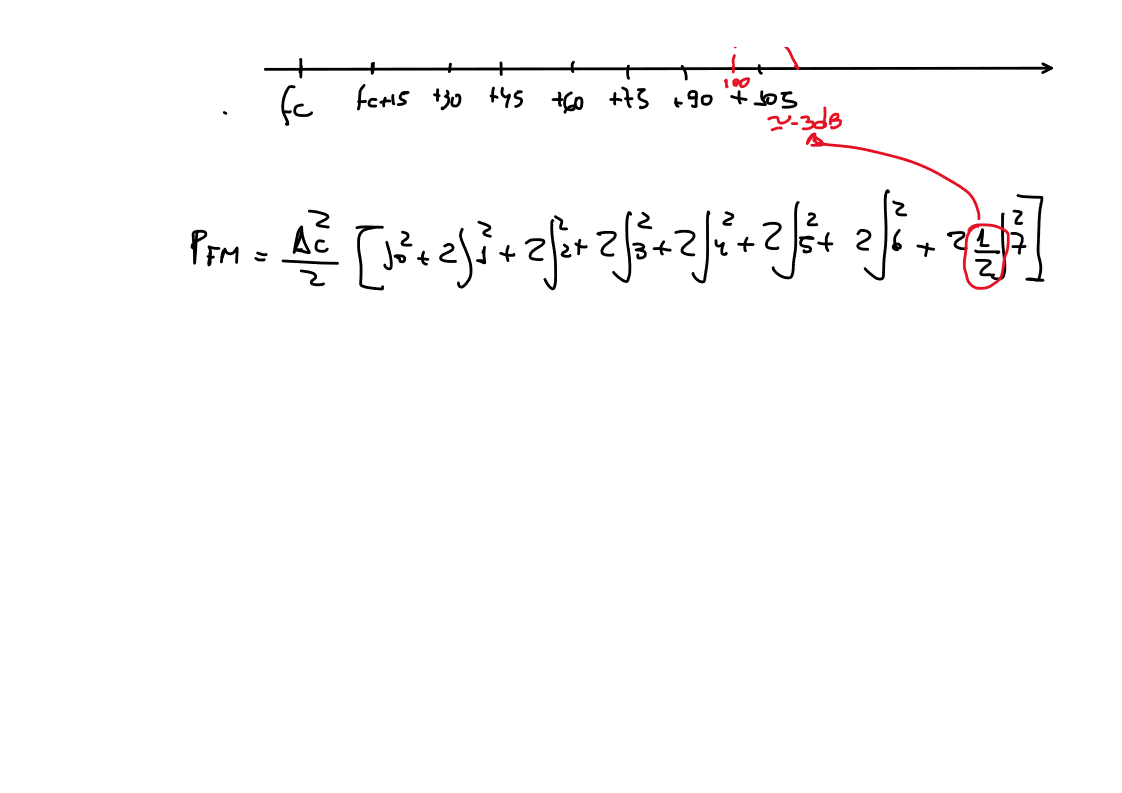 100
fc fc+15 +30 +45 +60 +75 +90 +105
≃-3dB
P_FM = Ac²/2 [J₀² + 2J₁² + 2J₂² + 2J₃² + 2J₄² + 2J₅² + 2J₆² + 2 1/2 J₇²]